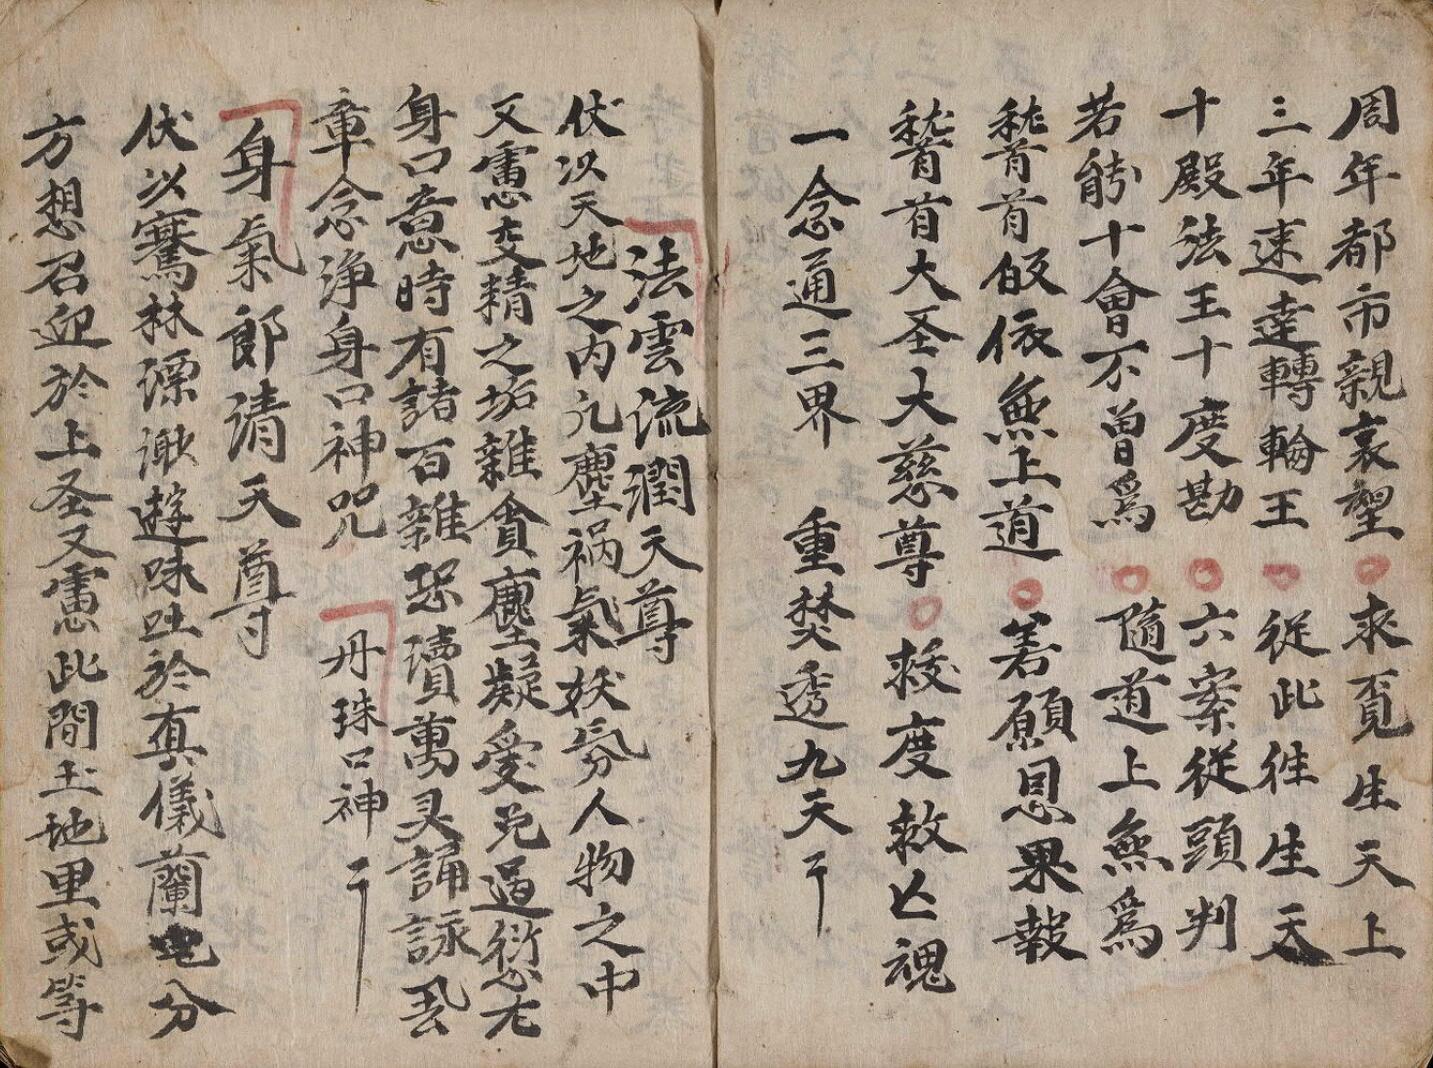 周年都市親哀望○求覓生天上
三年速達轉輪王○從此往生天
十殿法王十度勘○六案從頭判
若能十會不曾為○隨道上無為
嵇首皈依無上道○善願恩果報
嵇首大圣大慈尊○救度救亡魂
一念通三界 重焚透九天
法雲流潤天尊
伏以天地之內凢塵禍氣妖氛人物之中
又慮交精之垢雜貪塵凝愛免過愆尤
身口意時有諸百雜恐瀆萬灵誦詠
章念淨身口神咒 丹珠口神
身氣郎清天尊
伏以騫林漂渺遊味吐於真儀蘭 分
方想召迎於上圣又慮此間土地里或等